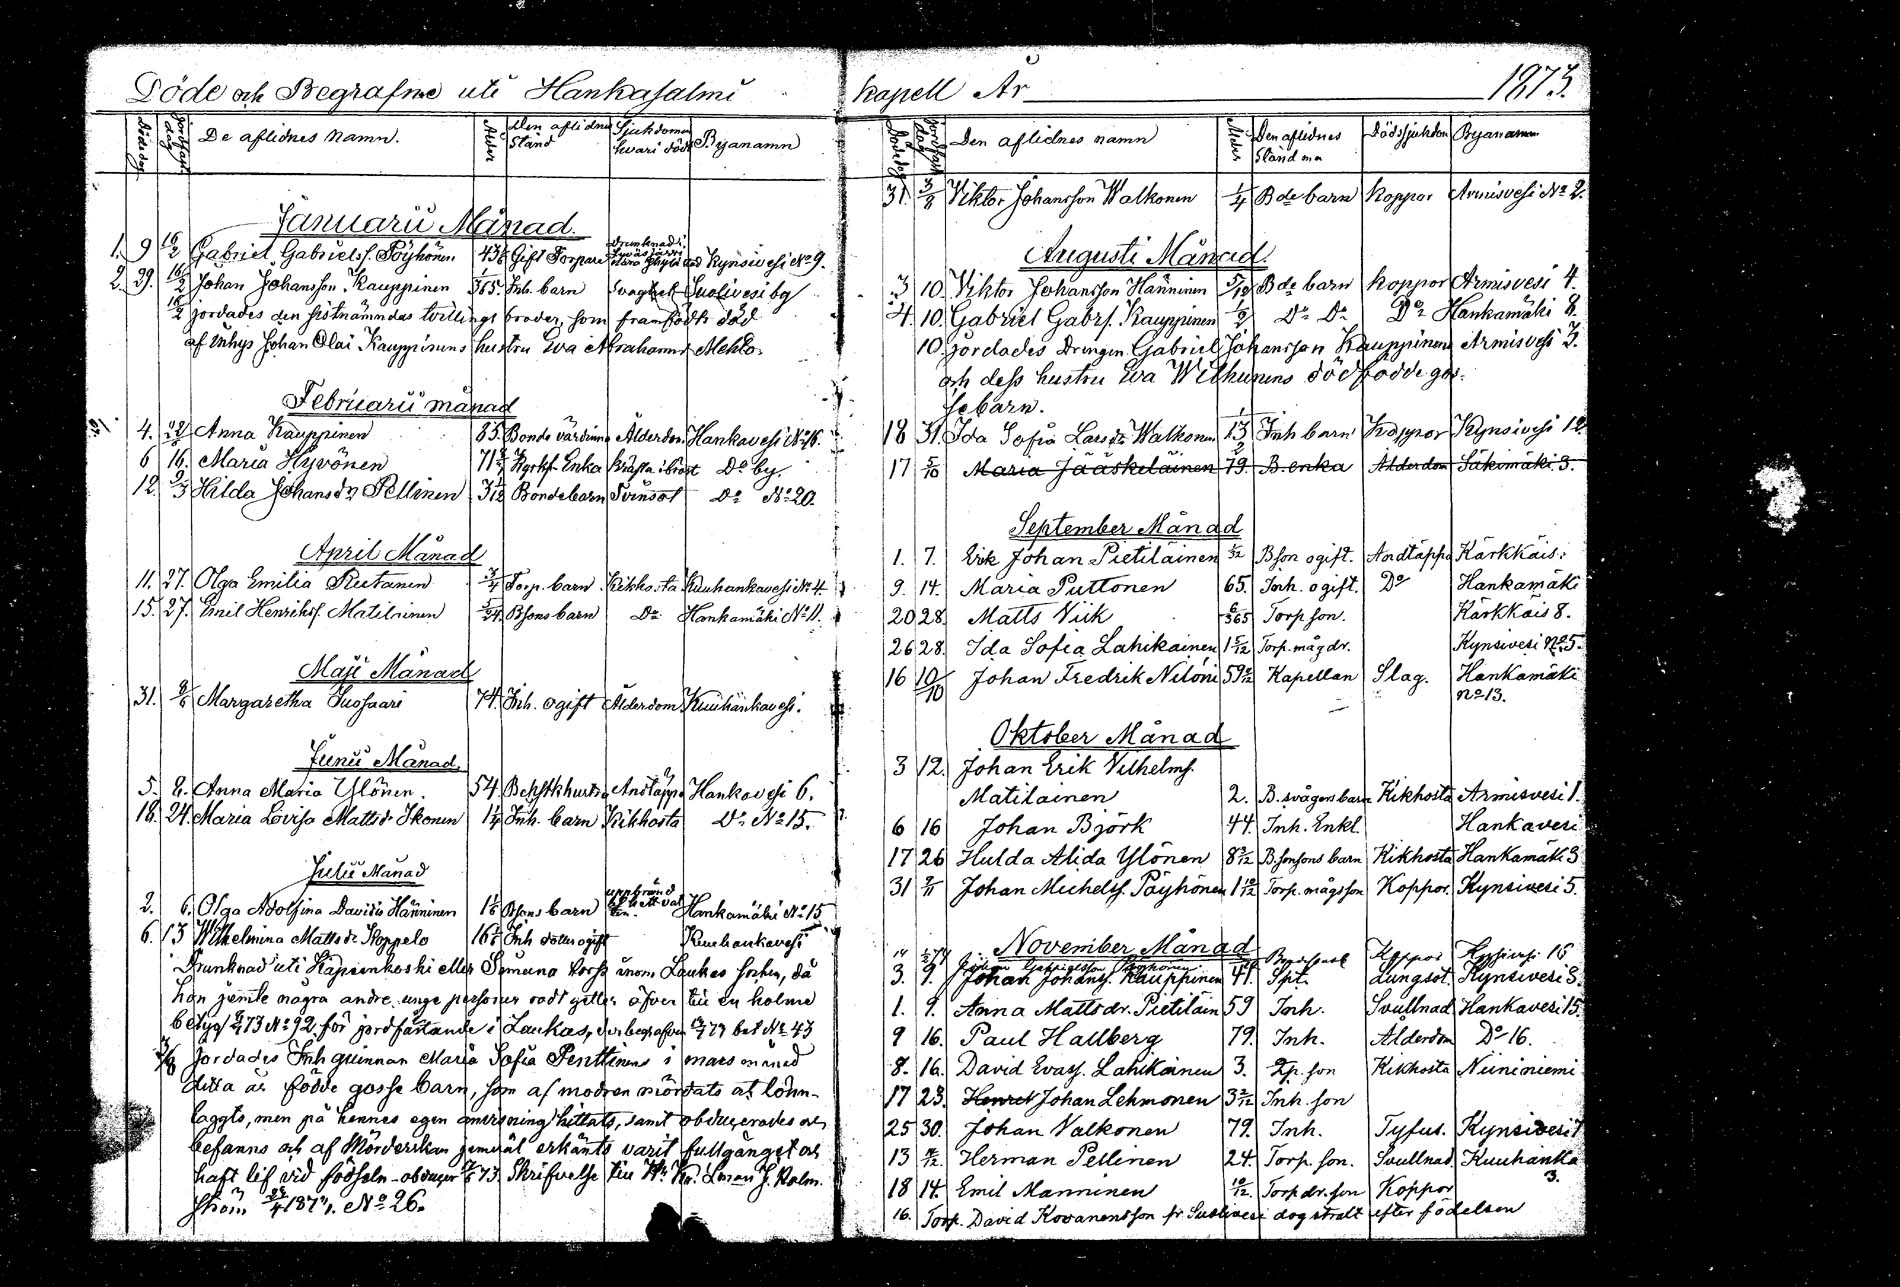 Döde och Begrafne uti Hankasalmi
Dödsdag Jordfäst. dag De aflidnes namn. Ålder Den aflidnes Stånd Sjukdomen hvari död Byanamn
Januarii Månad.
1. 9 16/2 Gabriel Gabrielss. Pöyhönen 43 Gift Torpare drunknad i Kynsivesi No 9.
2. 29. 16/2 Johan Johansson Kauppinen 1/365. Inh. barn Svaghet Suolivesi by
16/2 jordades den sistnämndas tvillings broder, som framfödts död
af Inhys Johan Olai Kauppinens hustru Eva Abrahamsd. Mehto.
Februarii månad
4. Anna Kauppinen 85. Bonde värdinna Ålderdom Hankavesi No 16.
6 16. Maria Hyvönen 71 Enka Kräfta i bröst Do by.
12. 9/3 Hilda Johansdr Pellinen 3 1/12 Bondebarn Svinsot Do No 20.
April Månad
11. 27. Olga Emilia Rutanen 3/4 Torp. barn Kikhosta Kuuhankavesi No 4.
15. 27. Emil Henrikss. Matilainen 5/24 Bsons barn Do Hankamäki No 11.
Maji Månad
31. 8/6 Margaretha Jussaari 74. Inh. ogift Ålderdom Kuuhankavesi.
Junii Månad
5. 8. Anna Maria Ylönen. 54. Andtäppa Hankavesi 6.
18. 24. Maria Lovisa Mattsdr Ikonen 1 1/4 Inh. barn Kikhosta Do No 15.
Julii Månad
2. 6. Olga Adolfina Davidsdr Hänninen 1 1/6 Bsons barn uppbränd Hankamäki No 15
6. 13 Wilhelmina Mattsdr Koppelo 16 Inh dotter ogift Kuuhankavesi
Drunknad uti Kapeenkoski eller Simuna forss inom Laukas socken, då
hon jemte några andre unge personer rodt öfver till en holme
betyg 73 No 92 för jordfästande i Laukas, der begrafven 13/7 73 bet No 43
3/8 Jordades Inh qvinnan Maria Sofia Penttinens i mars månad
detta år födde gosse barn, som af modren mördats och lönn-
laggts, men på hennes egen anvisning hittats, samt obducerades och
befanns och af Mörderskan jemväl erkänts varit fullgånget och
haft lif vid födseln - 73. Skrifvelse till Hr Kr. Länsm J. Holm-
ström 187. No 26.
kapell År 1873.
Dödsdag Jordfäst dag Den aflidnes namn Ålder Den aflidnes Stånd mm Dödssjukdom Byanamn
31. 3/8 Viktor Johansson Walkonen 1/4 Bde barn koppor Armisvesi No 2.
Augusti Månad.
3 10. Viktor Johansson Hänninen 5/12 Bde barn koppor Armisvesi 4.
4. 10. Gabriel Gabrs. Kauppinen 1/2 Do Do Do Hankamäki 8.
10. jordades Drängen Gabriel Johansson Kauppinens Armisvesi 3.
och dess hustru Eva Wilhunens dödfödde gos-
sebarn.
18 31. Ida Sofia Larsdr Walkonen 1/13 Inh barn Koppor Kynsivesi 12
17 5/10 Maria Jääskeläinen 79 B. enka Alderdom Säkinmäki 3.
September Månad
1. 7. Erik Johan Pietiläinen Bson ogift. Andtäppa Kärkkäis.
9. 14. Maria Puttonen 65. Inh. ogift. Do Hankamäki
20 28. Matts Viik 6/365 Torp son. Kärkkäis 8.
26 28. Ida Sofia Lahikainen 1 5/12 Torp. måg dr. Kynsivesi no 5.
16 10/10 Johan Fredrik Niloni 59 Kapellan Slag. Hankamäki
no 13.
Oktober Månad
3 12. Johan Erik Vilhelms.
Matilainen 2. B. svågers barn Kikhosta Armisvesi 1.
6 16 Johan Björk 44. Inh. Enkl. Hankavesi
17 26 Hulda Alida Ylönen 8 3/12 B. sonsons barn Kikhosta Hankamäki 3
31 9/11 Johan Michelss. Pöyhönen 1 10/12 Torp. mågsson Koppor. Kynsivesi 5.
November Månad
Johan Gabrielsson Pöyhönen Koppor Kynsivesi 16
3. 9. Johan Johans. Kauppinen 41. Spt. Lungsot. Kynsivesi 3.
1. 9. Anna Mattsdr. Pietiläin 59 Inh. Svullnad Hankavesi 15.
9 16. Paul Hallberg 79. Inh. Ålderdom Do 16.
8. 16. David Evass. Lahikainen 3. Tp. son Kikhosta Niininiemi
17 23. Henrik Johan Lehmonen 3 2/12 Inh. son
25 30. Johan Valkonen 79. Inh. Tyfus. Kynsivesi 7
13 /12. Herman Pellinen 24. Torp. son. Svullnad Kuuhanka
3.
18 14. Emil Manninen 10/12. Torp dr. son Koppor
16. Torp. David Kovanens son fr Suolivesi dog straxt efter födelsen